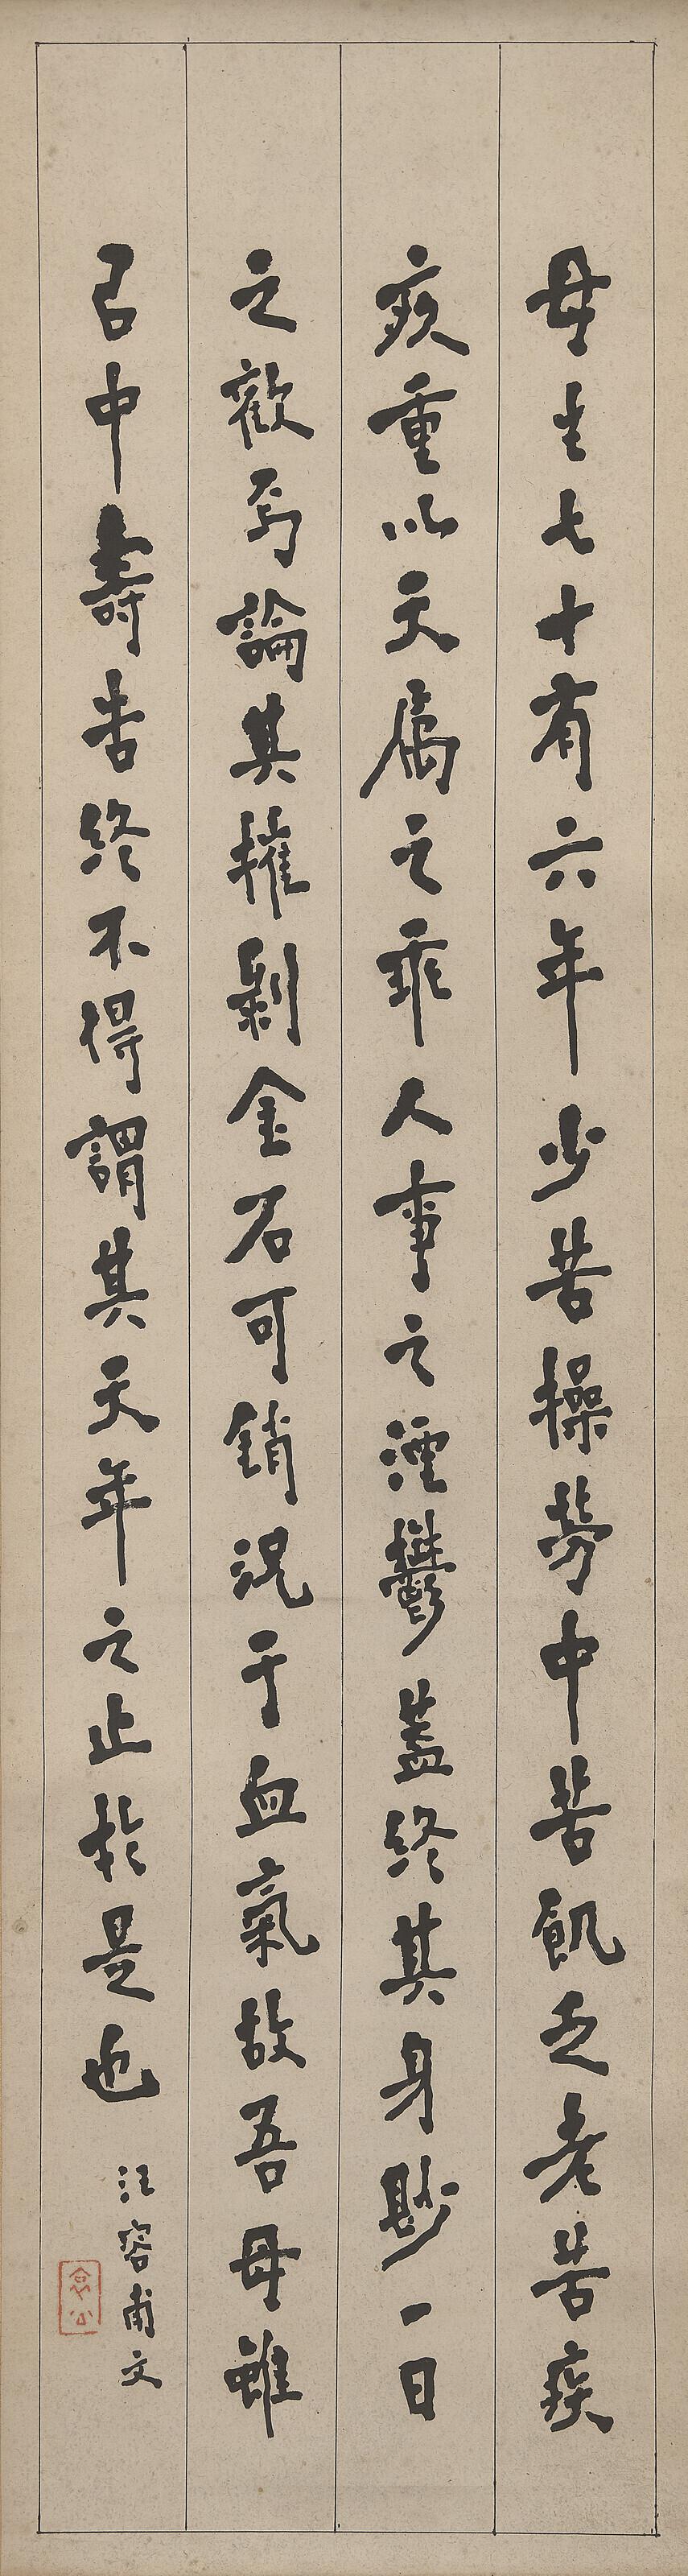 母生七十有六年少苦操勞中苦飢乏老苦疾
疢重以天屬之乖人事之湮鬱蓋終其身尟一日
之歡焉論其摧剝金石可銷況于血氣故吾母雖
以中壽告終不得謂其天年之止於是也
汪容甫文